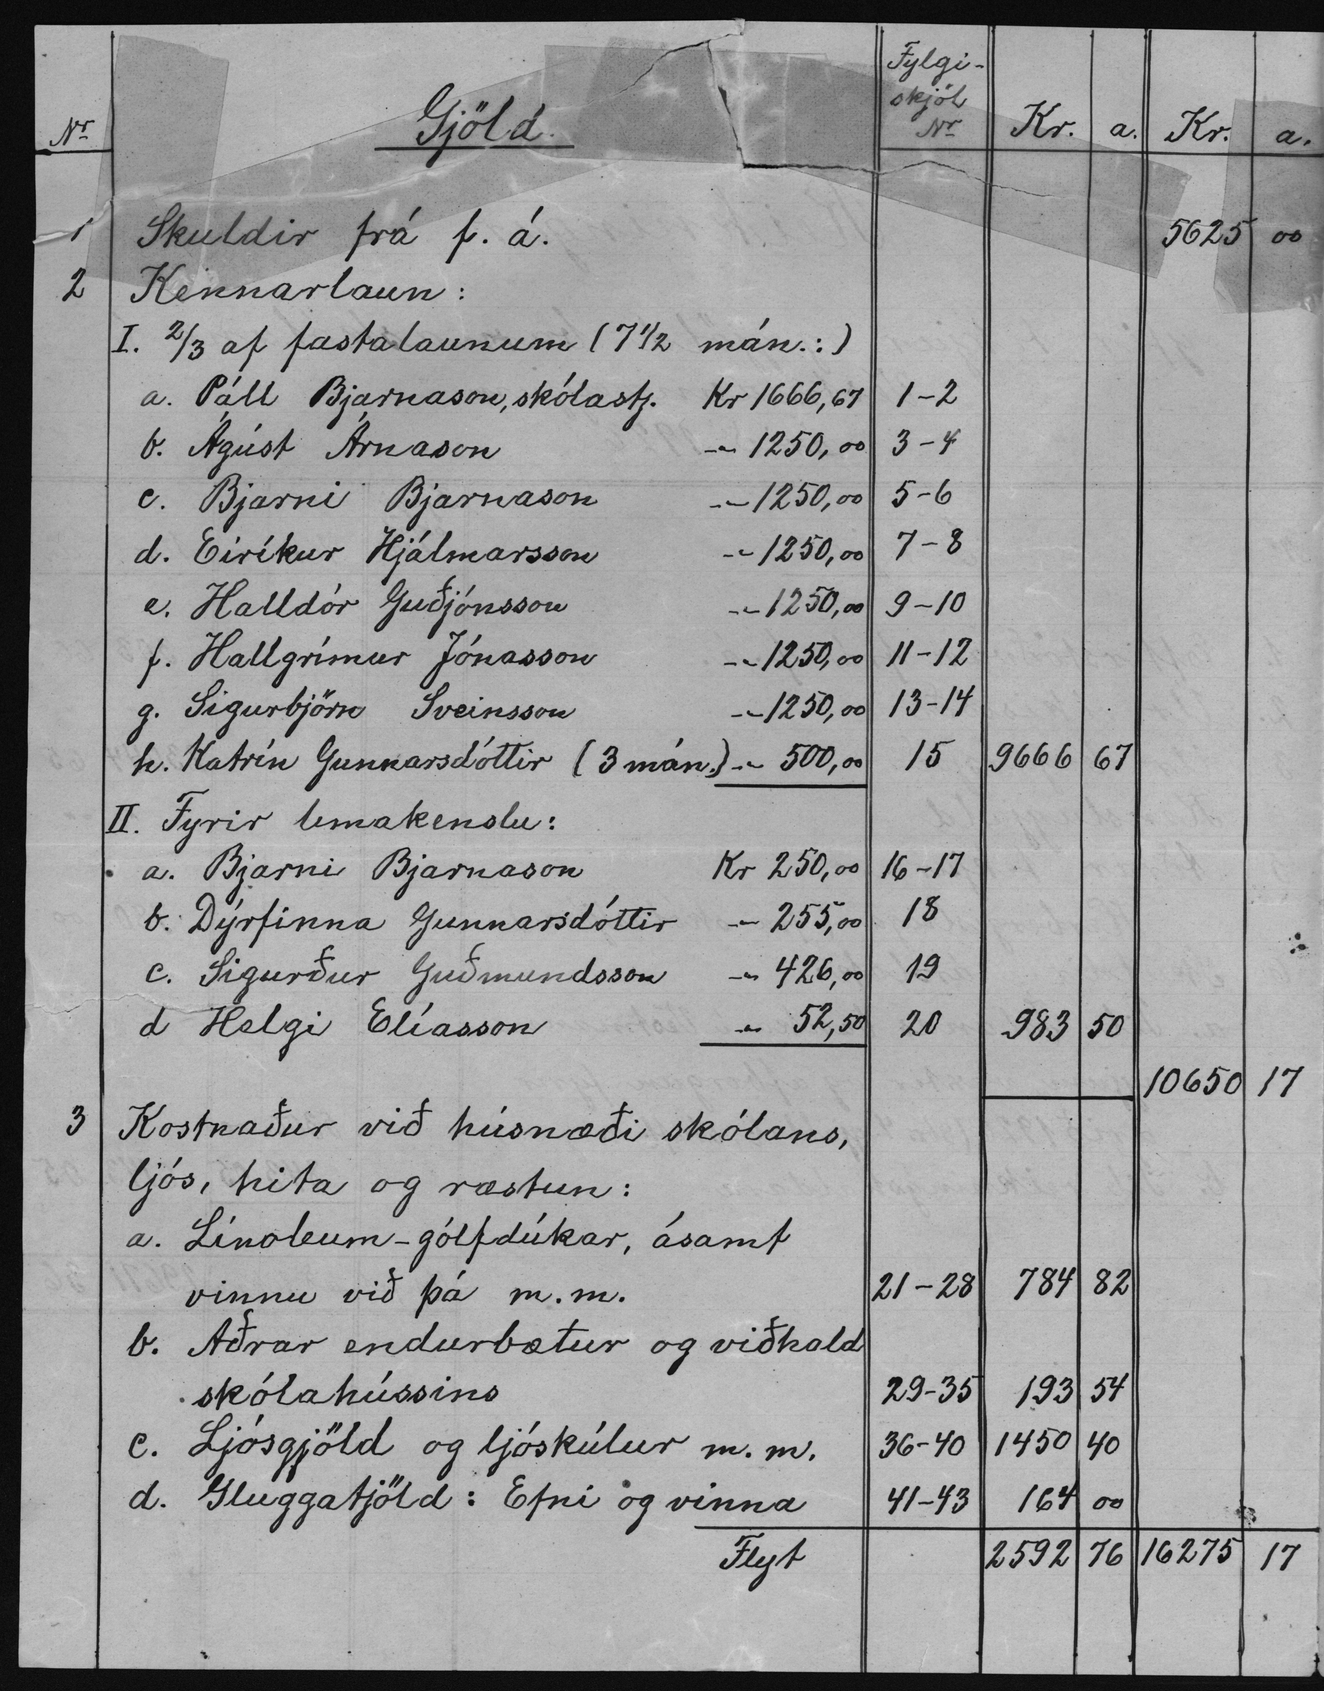 Nr Gjöld. Fylgi-skjöl Nr Kr. a. Kr. a.
1 Skuldir frá f. á. 5625 00
2 Kennarlaun:
I. 2/3 af fastalaunum (7 1/2 mán.:)
a. Páll Bjarnason, skólastj. Kr 1666,67 1-2
b. Ágúst Árnason -"- 1250,00 3-4
c. Bjarni Bjarnason -"- 1250,00 5-6
d. Eiríkur Hjálmarsson -"- 1250,00 7-8
e. Halldór Guðjónsson -"- 1250,00 9-10
f. Hallgrímur Jónasson -"- 1250,00 11-12
g. Sigurbjörn Sveinsson -"- 1250,00 13-14
h. Katrín Gunnarsdóttir (3 mán.) -"- 500,00 15 9666 67
II. Fyrir tímakenslu:
a. Bjarni Bjarnason Kr 250,00 16-17
b. Dýrfinna Gunnarsdóttir -"- 255,00 18
c. Sigurður Guðmundsson -"- 426,00 19
d Helgi Elíasson -"- 52,50 20 983 50
10650 17
3 Kostnaður við húsnæði skólans,
ljós, hita og ræstun:
a. Línoleum-gólfdúkar, ásamt
vinnu við þá m.m. 21-28 784 82
b. Aðrar endurbætur og viðhald
skólahússins 29-35 193 54
c. Ljósgjöld og ljóskúlur m.m. 36-40 1450 40
d. Gluggatjöld: Efni og vinna 41-43 164 00
Flyt 2592 76 16275 17